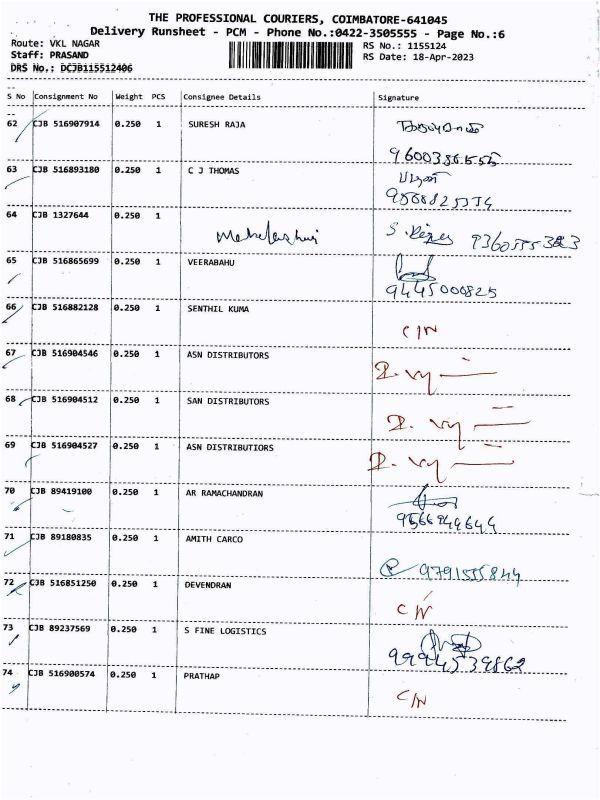 THE PROFESSIONAL COURIERS, COIMBATORE-641045
Delivery Runsheet - PCM - Phone No.:0422-3505555 - Page No.:6
Route: VKL NAGAR RS No.: 1155124
Staff: PRASAND RS Date: 18-Apr-2023
DRS No.: DCJB115512406
S No Consignment No Weight PCS Consignee Details Signature
62 CJB 516907914 0.250 1 SURESH RAJA
9600386555
63 CJB 516893180 0.250 1 C J THOMAS
64 CJB 1327644 0.250 1
65 CJB 516865699 0.250 1 VEERABAHU
9445000825
66 CJB 516882128 0.250 1 SENTHIL KUMA
C/N
67 CJB 516904546 0.250 1 ASN DISTRIBUTORS
68 CJB 516904512 0.250 1 SAN DISTRIBUTORS
69 CJB 516904527 0.250 1 ASN DISTRIBUTIORS
70 CJB 89419100 0.250 1 AR RAMACHANDRAN
9566944644
71 CJB 89180835 0.250 1 AMITH CARCO
9791555844
72 CJB 516851250 0.250 1 DEVENDRAN
C/N
73 CJB 89237569 0.250 1 S FINE LOGISTICS
9994539862
74 CJB 516900574 0.250 1 PRATHAP
C/N